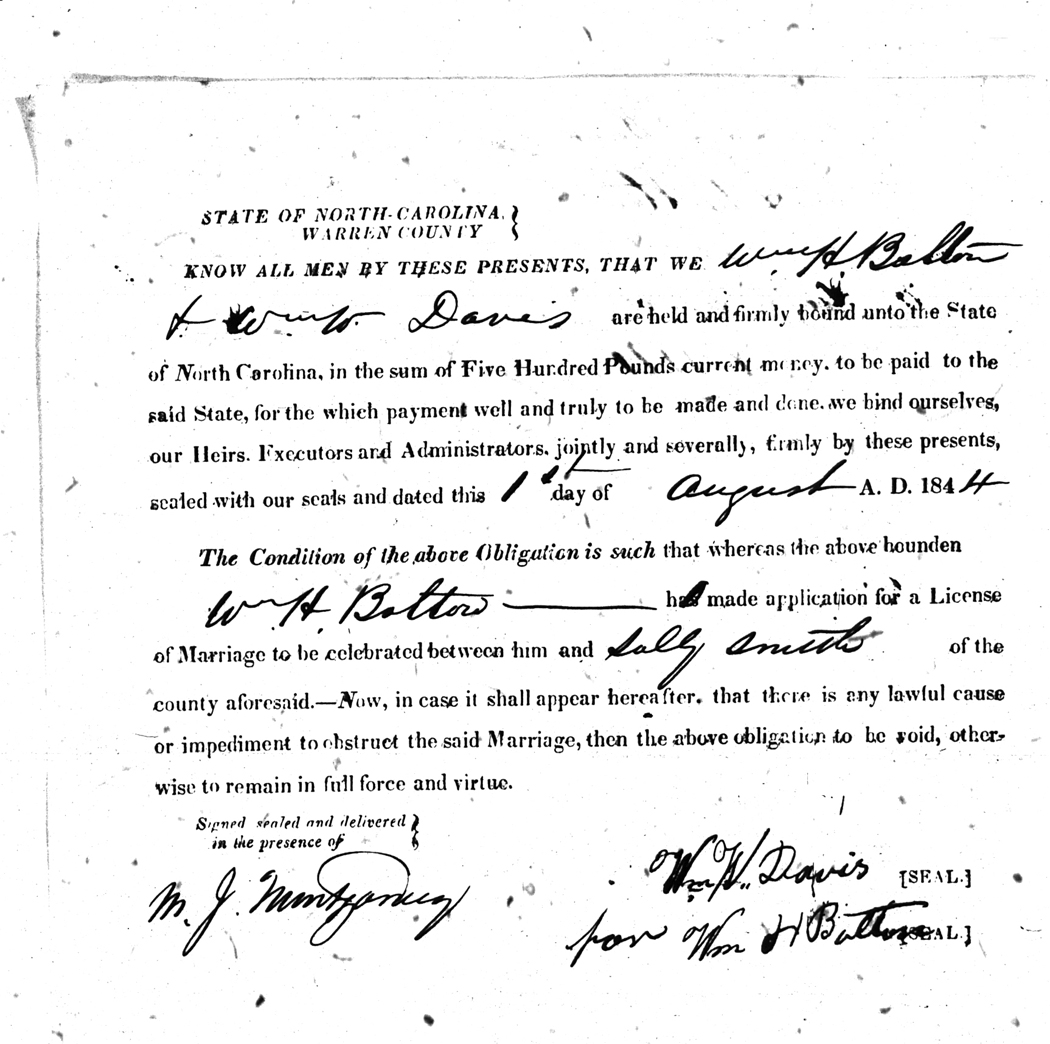 STATE OF NORTH-CAROLINA,
WARREN COUNTY
KNOW ALL MEN BY THESE PRESENTS, THAT WE Wm H. Batton
& Wm W. Davis are held and firmly bound unto the State
of North Carolina, in the sum of Five Hundred Pounds current money, to be paid to the
said State, for the which payment well and truly to be made and done, we bind ourselves,
our Heirs, Executors and Administrators, jointly and severally, firmly by these presents,
sealed with our seals and dated this 1st day of August A. D. 1844
The Condition of the above Obligation is such that whereas the above bounden
Wm H. Batton has made application for a License
of Marriage to be celebrated between him and Sally Smith of the
county aforesaid.—Now, in case it shall appear hereafter, that there is any lawful cause
or impediment to obstruct the said Marriage, then the above obligation to be void, other-
wise to remain in full force and virtue.
Signed sealed and delivered
in the presence of
M. J. Montgomery
Wm W. Davis [SEAL.]
for Wm H Batton [SEAL.]